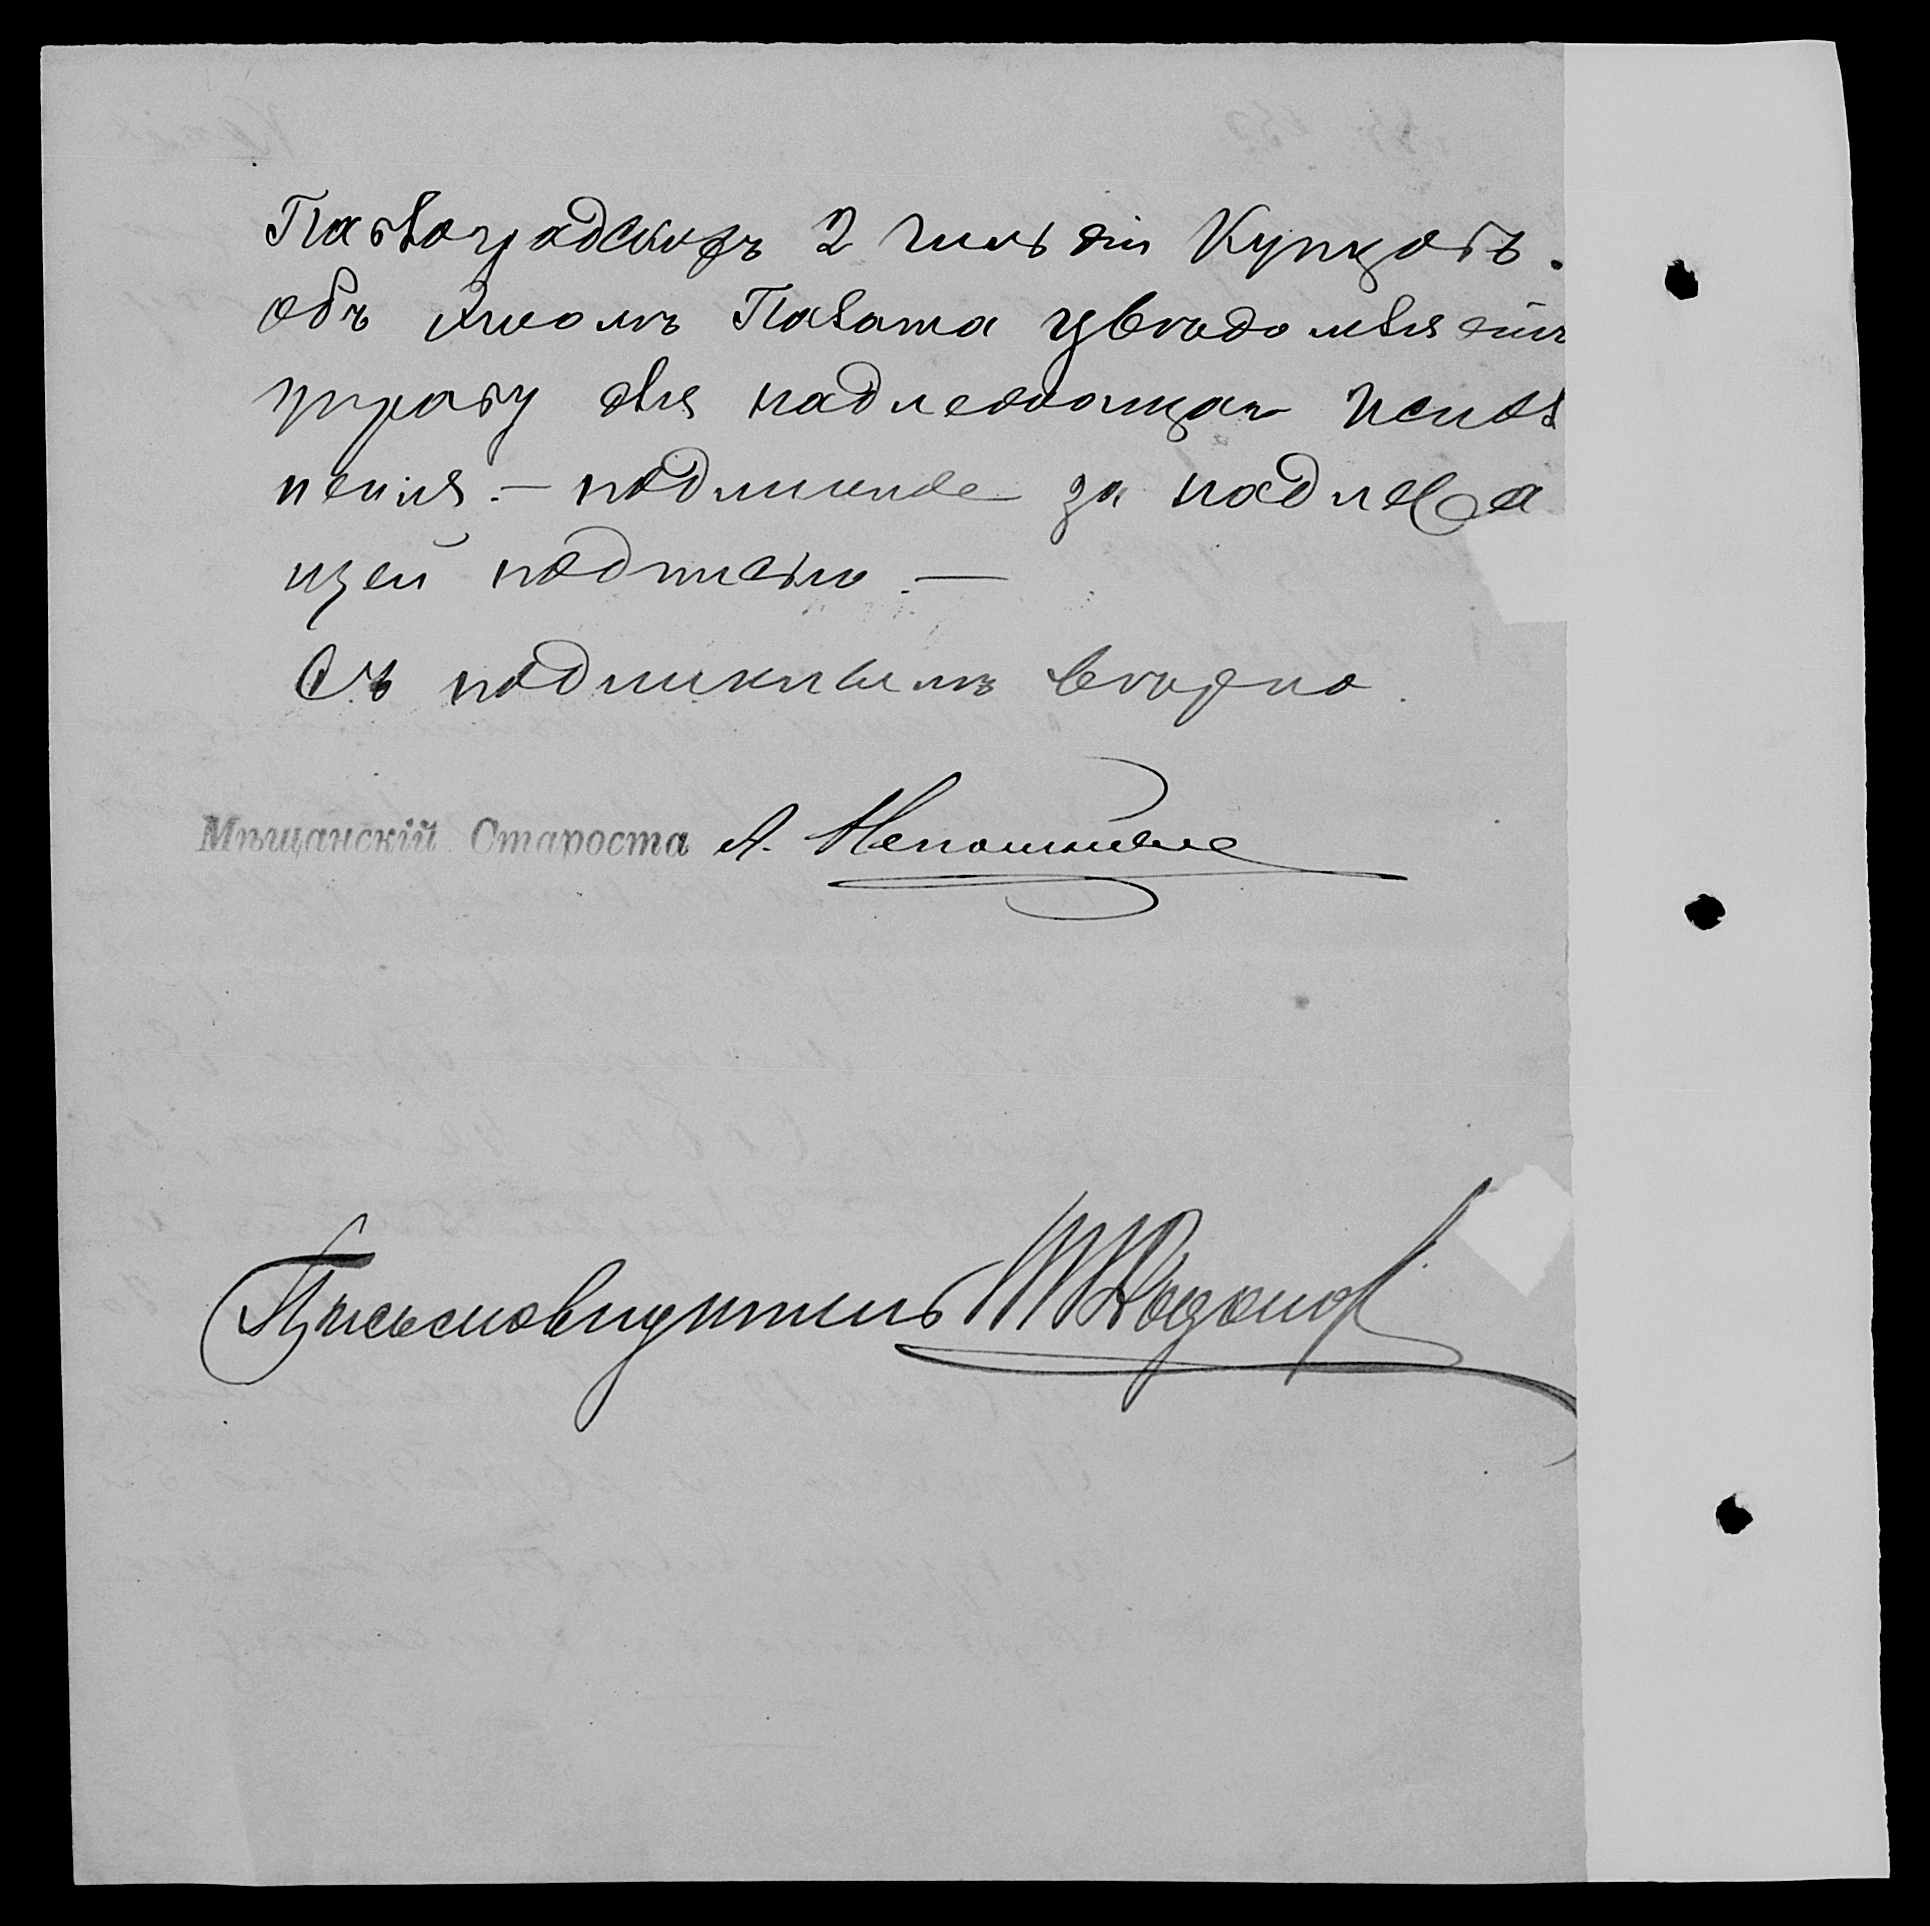 Павлоградскихъ 2 гильдіи Купцовъ.
объ этомъ Палата увѣдомляетъ
управу для надлежащаго испол
ненія. — подлинное за надлежа
щей подписью. —
Съ подлиннымъ вѣрно.
Мѣщанскій Староста А.
Письмоводитель